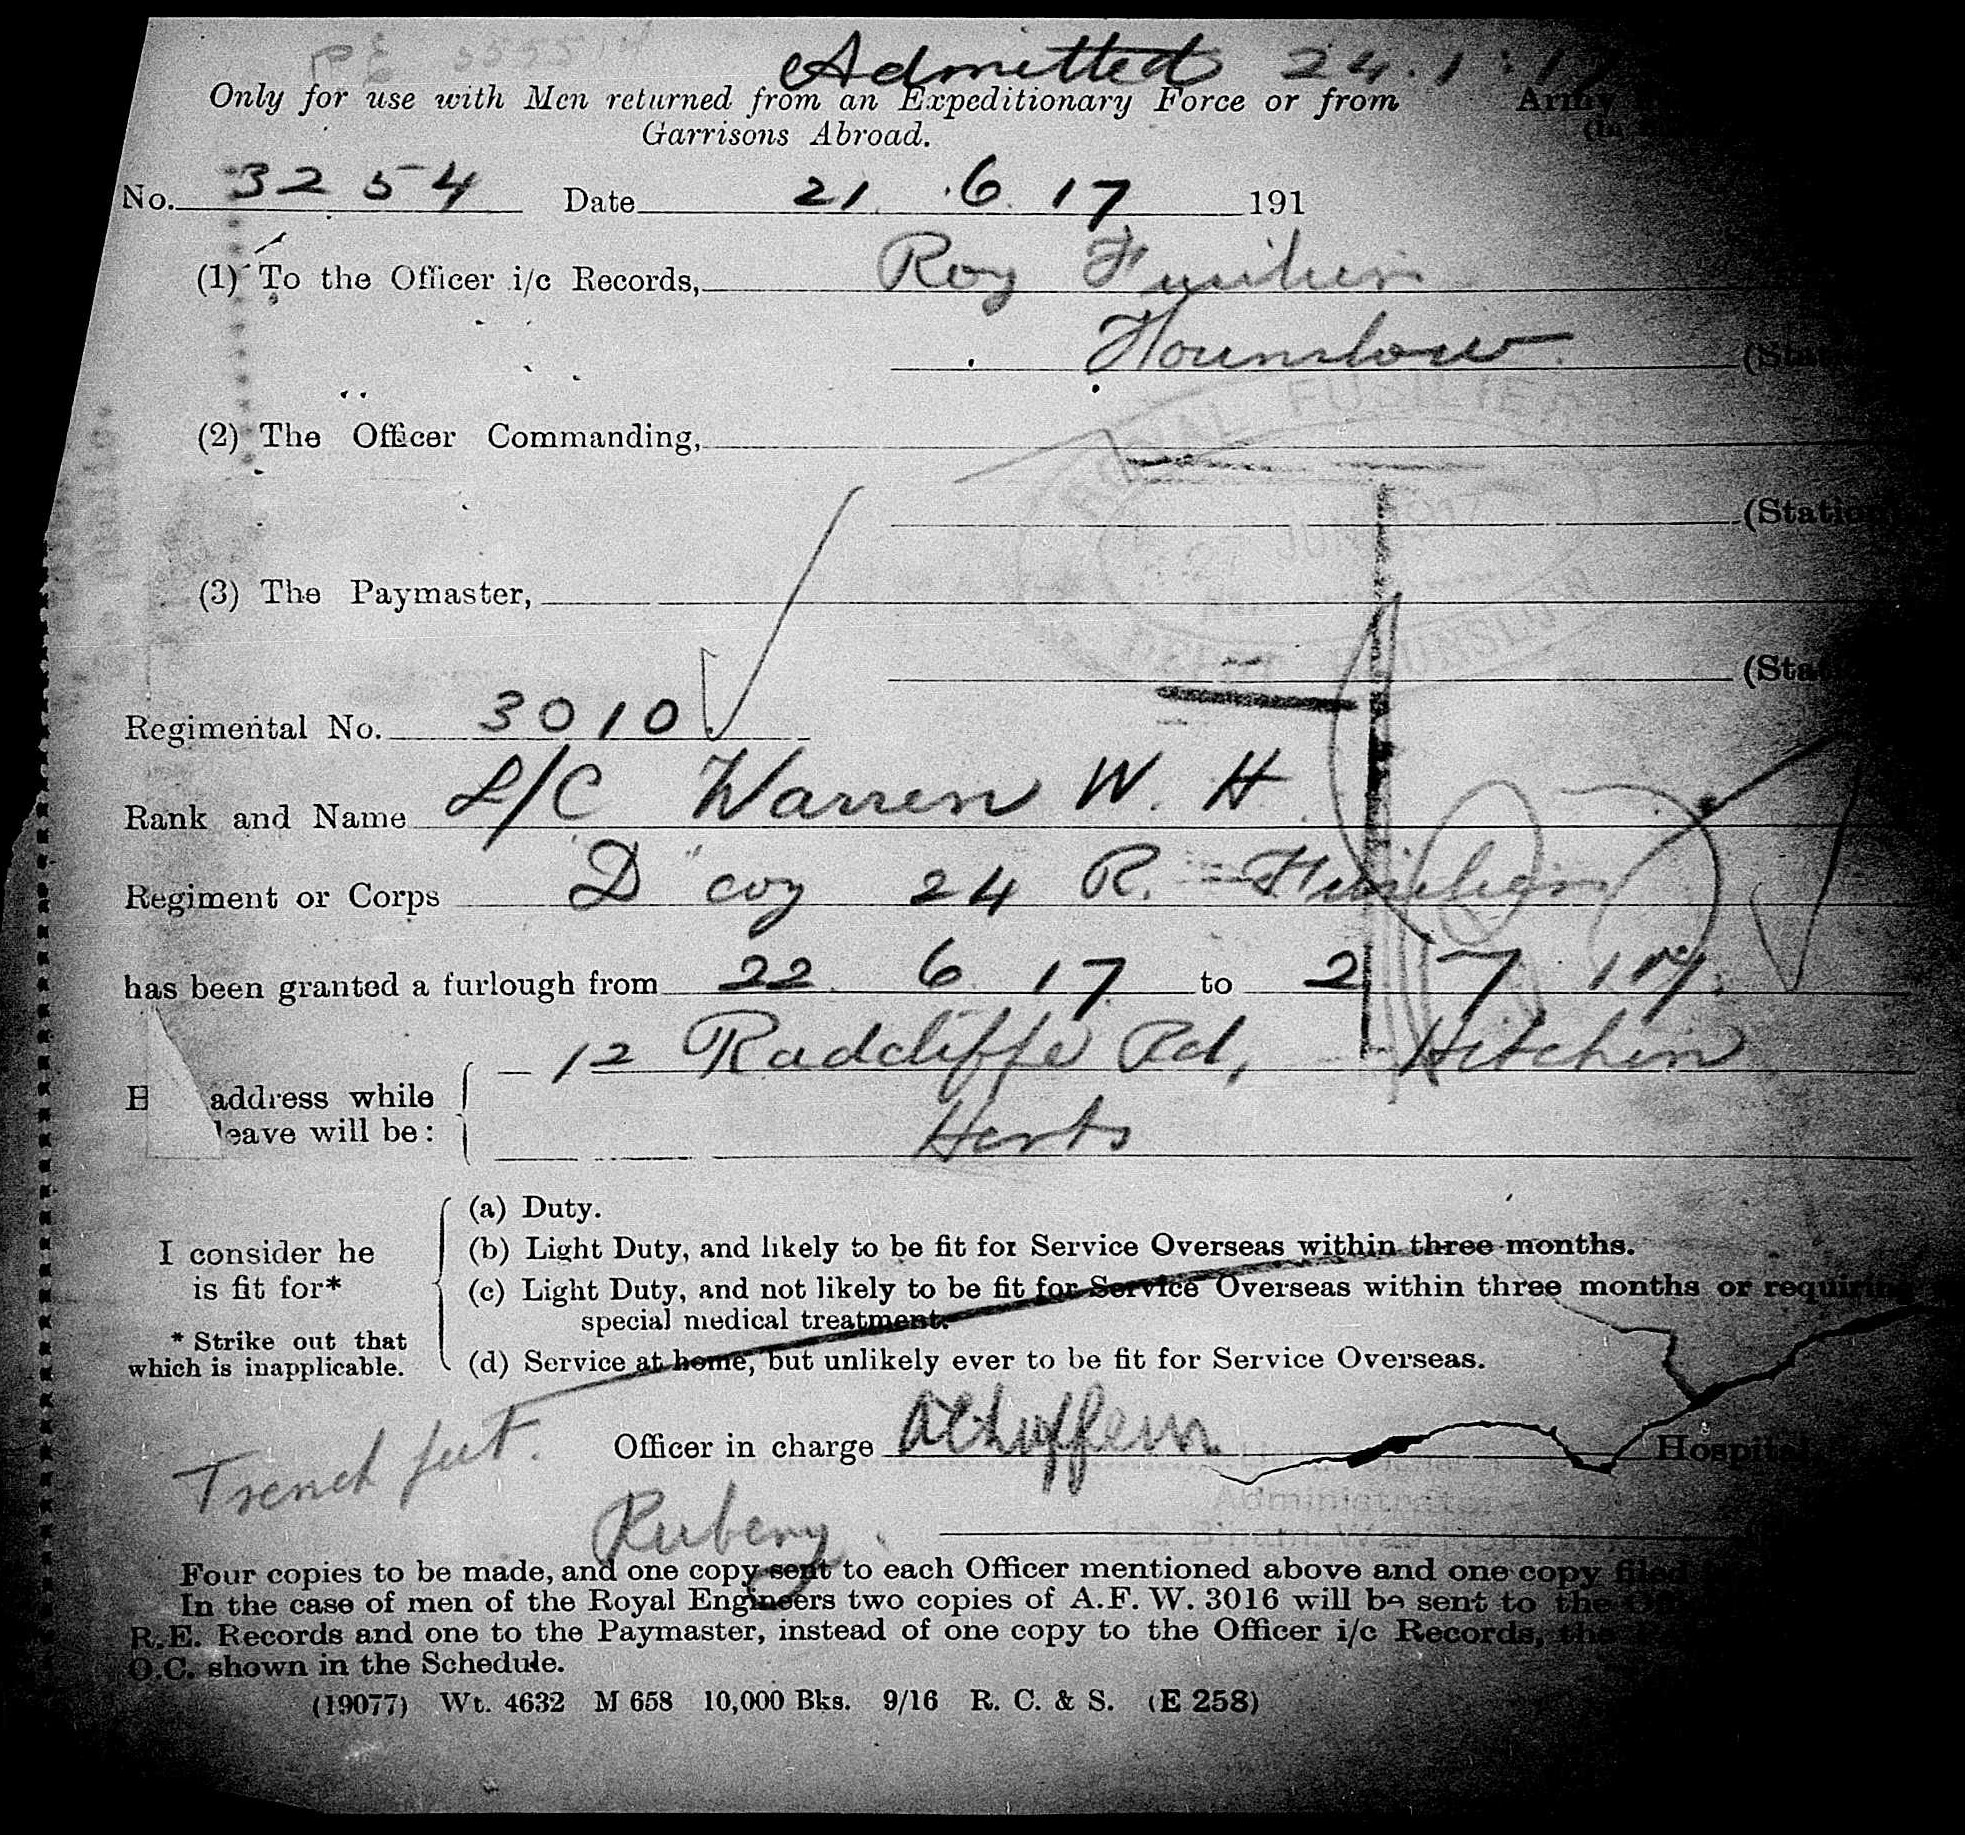 Admitted 24.1.17
Only for use with Men returned from an Expeditionary Force or from Army
Garrisons Abroad. (In
No. 3254 Date 21.6.17 191
(1) To the Officer i/c Records, Roy Fusiliers
Hounslow (Stati
ROYAL FUSILIER
(2) The Officer Commanding,
(Statio
27 JUN 1917
(3) The Paymaster,
HOUNSLOW
(Sta
Regimental No. 3010
Rank and Name L/C Warren W. H
Regiment or Corps "D" coy 24 R. Fusiliers
has been granted a furlough from 22 6 17 to 2 7 17.
12 Radcliffe Rd, Hitchin
H address while
leave will be: Herts
(a) Duty.
I consider he (b) Light Duty, and likely to be fit for Service Overseas within three months.
is fit for* (c) Light Duty, and not likely to be fit for Service Overseas within three months or requiring
special medical treatment.
* Strike out that
which is inapplicable. (d) Service at home, but unlikely ever to be fit for Service Overseas.
Trench feet. Officer in charge Hospital
Administrator
Rubery
Four copies to be made, and one copy sent to each Officer mentioned above and one copy filed
In the case of men of the Royal Engineers two copies of A.F. W. 3016 will be sent to the
R.E. Records and one to the Paymaster, instead of one copy to the Officer i/c Records, the
O.C. shown in the Schedule.
(19077) Wt. 4632 M 658 10,000 Bks. 9/16 R. C. & S. (E 258)